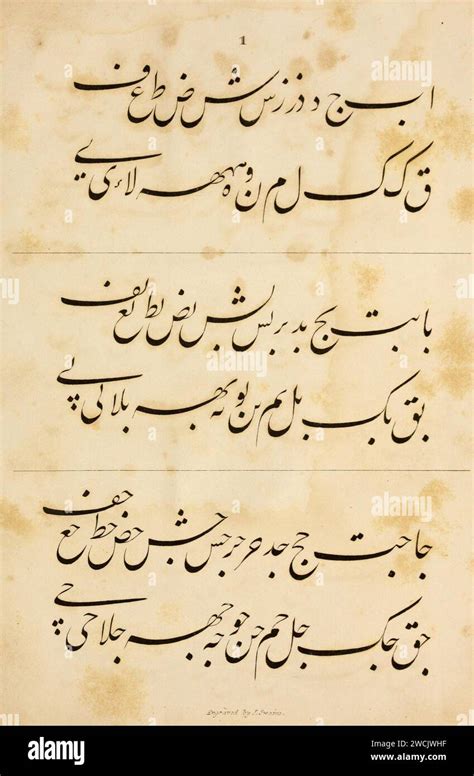 1
ا ب ج د ذ ر ز س ش ض ط ع ف
ق ک ک ل م ن و ه ه لا ء ی ے
با بت بج بد بر بس بش بض بط بع بف
بق بک بل بم بن بو به بهه بلا بی بے
جا جب جت جج جد جر جس جش جض جط جع جف
جق جک جل جم جن جو جه جهه جلا جی جے
Engraved by J. Swaine.
alamy
Image ID: 2WCJWHF
www.alamy.com